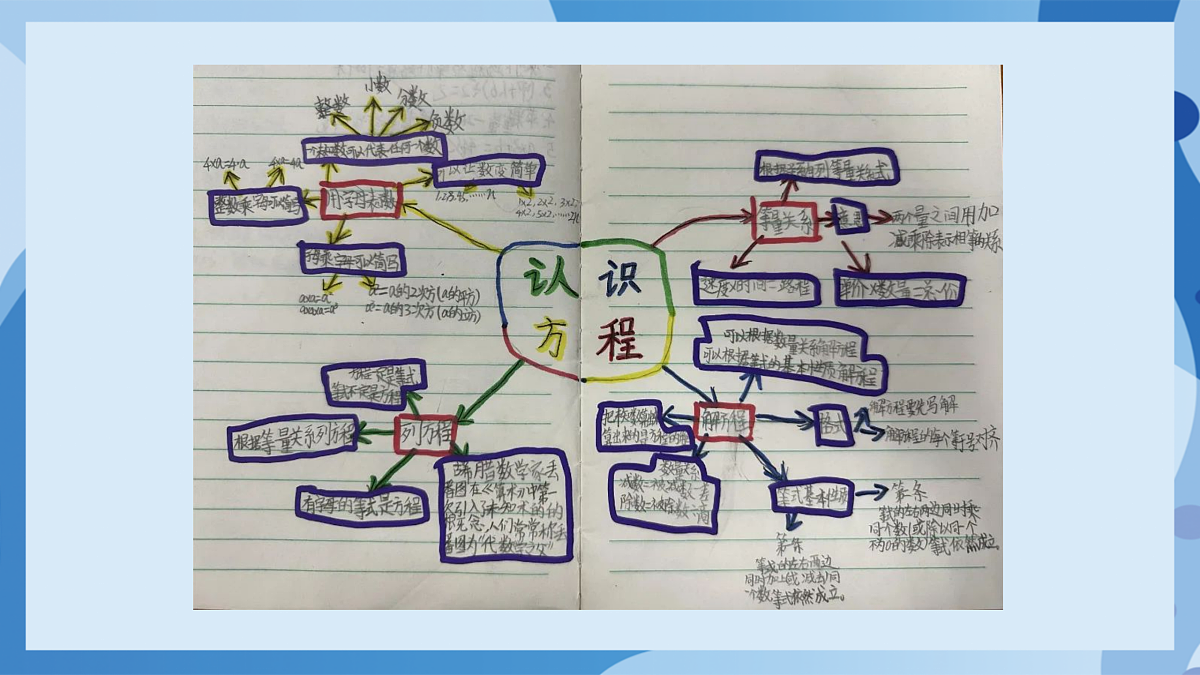 认 识
方 程
用字母表示数
字母可以代表任何一个数
整数
小数
分数
负数
可以让数变简单
1,2,3,4,5,……n
1×2,2×2,3×2,
4×2,5×2,……2n
整数乘字母可以简写
4×a=4·a
4×a=4a
字母乘字母可以简写
a×a=a²
a×a×a=a³
a²=a的2次方(a的平方)
a³=a的3次方(a的立方)
等量关系
根据关系句列等量关系式
意思
两个量之间用加
减乘除表示相等的关系
速度×时间=路程
单价×数量=总价
列方程
方程一定是等式
等式不一定是方程
根据等量关系列方程
有字母的等式是方程
古希腊数学家丢
番图在《算术》中第一
次引入未知术的的
概念,人们常常称丢
番图为"代数学之父
解方程
可以根据数量关系解方程
可以根据等式的基本性质解方程
格式
解方程要先写解
解方程的每个等号对齐
数量关系
减数=被减数-差
除数=被除数÷商
等式基本性质
第一条
等式的左右两边
同时加上或减去同
一个数,等式依然成立。
第二条
等式的左右两边同时乘
同一个数(或除以同一个
不为0的数)等式依然成立